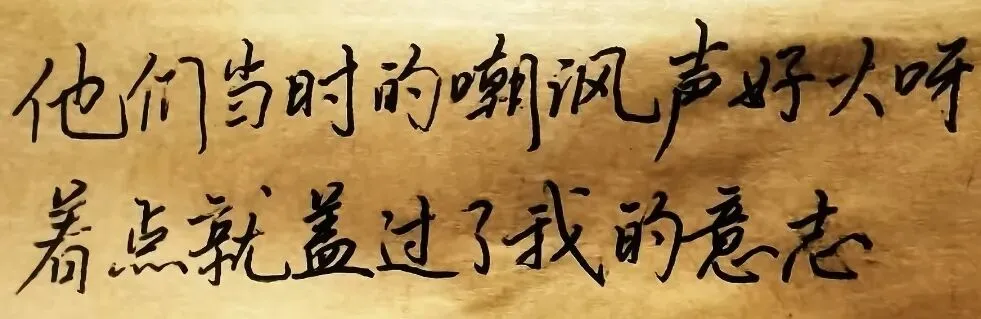 他们当时的嘲讽声好大呀
着点就盖过了我的意志